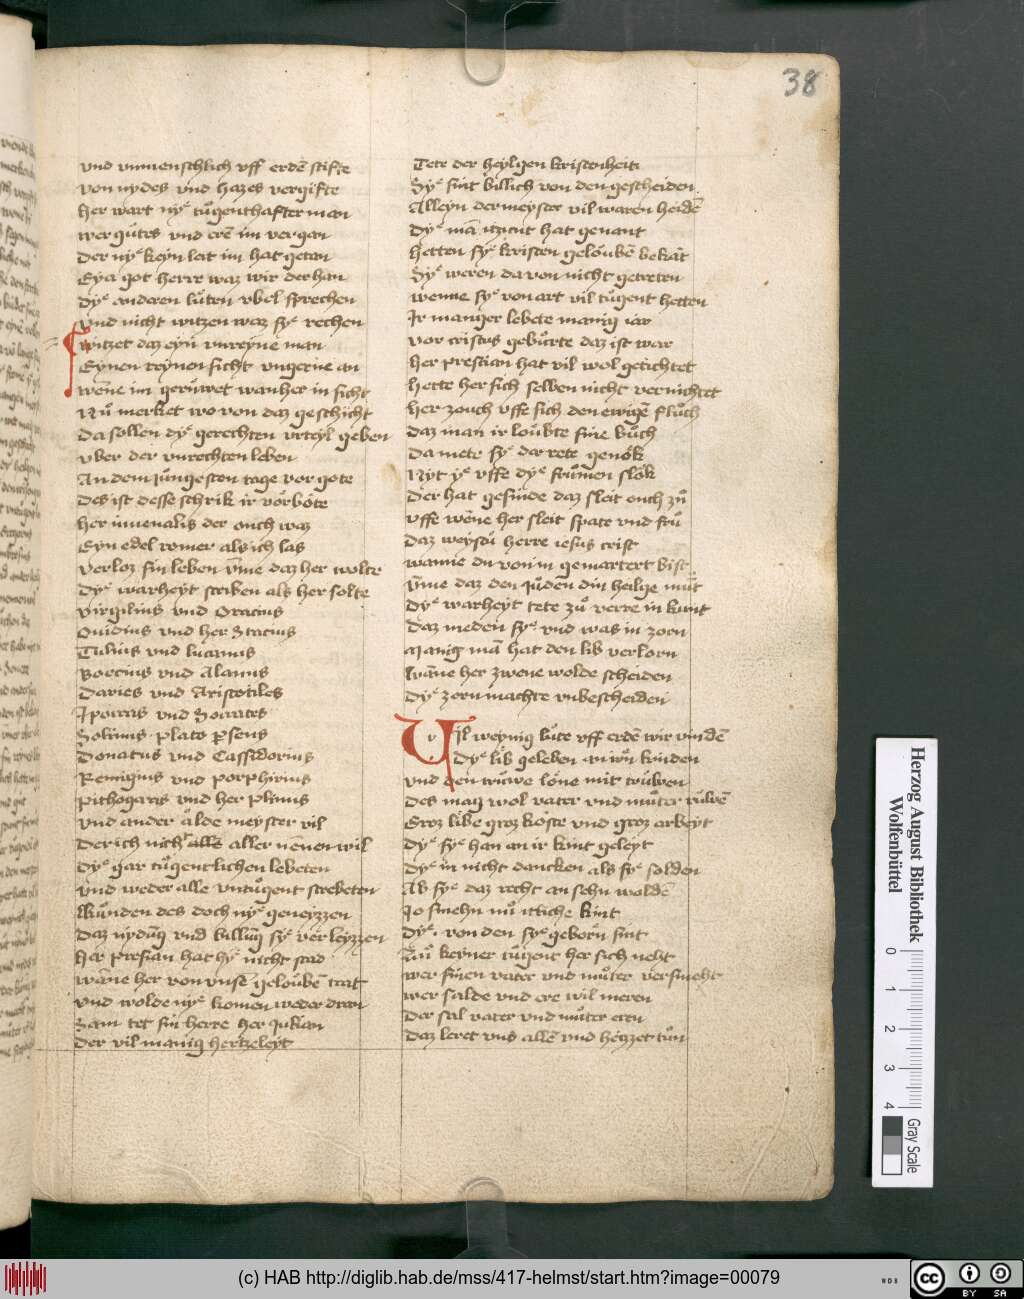 38
vnd vnmenschlich vff erdē stifte
von nydes vnd hazes vergifte
her wart nyͤ tuͦgenthafter man
wer guͦtes vnd erē im vergan
der nyͤ keyn leit im hat getan
Eya got herre waz wir der han
dyͤ anderen luͤten vbel sprechen
vnd nicht witzen waz syͤ rechen
witzet daz eyn vnreyne man
Eynen reynen sicht vngerne an
wēne im geruͤwet wan her in sicht
Nuͦ merket wo von daz geschicht
da sollen dyͤ gerechten vrteyl geben
vber der vnrechten leben
An dem juͦngesten tage vor gote
des ist desse schrik ir vorbote
her iuuenalis der ouch waz
Eyn edel romer als ich las
verloz sin leben vm̄e daz her wolte
dyͤ warheyt scriben als her solte
virgilius vnd Oracius
Ouidius vnd her Stacius
Tulius vnd lucanus
Boecius vnd Alanus
Daries vnd Aristotiles
Ipocras vnd Socrates
Solinus plato ꝑseus
Donatus vnd Cassidorius
Remigius vnd porphirius
pithogaras vnd her plinius
vnd ander alde meyster vil
Der ich nicht alle aller nenen wil
dyͤ gar tuͦgentlichen lebeten
vnd weder alle vntuͦgent strebeten
kuͦnden des doch nyͤ geneyzzen
Daz nyduͦg vnd billuͦg syͤ verleyzzen
her presian hat hyͤ nicht stad
wāne her von vnsē gelouͦbē trat
vnd wolde nyͤ komen weder dran
Sam tet sin herre her Julian
der vil manig hertzeleyt
Tete der heylgen kristenheit
Dyͤ sint billich von den gescheiden
Alleyn der meyster vil waren heidē
dyͤ mā iczunt hat genant
hetten syͤ kristen gelouͦbē bekāt
Dyͤ weren da von nicht getreten
wenne syͤ von art vil tuͦgent hetten
Ir maniger lebete manig iar
vor cristus gebuͦrte daz ist war
her prestian hat vil wol getichtet
hette her sich selben nicht vernichtet
her zouch vffe sich den ewigē fluͦch
daz man ir louͦbte sine buͦch
da mete syͤ dar rete genok
Nyt yͤ vffe dyͤ fruͦmen slok
der hat gesinde daz sleit ouch zuͦ
vffe wēne her sleit spate vnd fruͦ
daz weystuͦ herre iesus crist
wanne du von in gemartert bist
vm̄e daz den Juͦden din heilge muͦt
dyͤ warheyt tete zuͦ verre in kunt
daz meden syͤ vnd was in zorn
Manig mā hat den lib verlorn
wāne her zwene wolde scheiden
dyͤ zorn machte vnbescheiden
Vil weynig luͤte vff erdē wir vindē
dyͤ lib geleben an irn kinden
vnd den truͦwe lone mit truͦwen
des mag wol vater vnd muͦter ruͦwē
Groz libe groz koste vnd groz arbeyt
dyͤ syͤ han an ir kint geleyt
dyͤ in nicht dancken als syͤ solden
Ab syͤ daz recht an sehn woldē
Jo smehn nuͦ itliche kint
dyͤ von den syͤ geborn sint
Zuͦ keyner tuͦgent her sich neht
wer sinen vater vnd muͦter versmeht
wer salde vnd ere wil meren
Der sal vater vnd muͦter eren
daz leret vns allē vnd heyzet tuͦn
Herzog August Bibliothek
Wolfenbüttel
0 1 2 3 4
Gray Scale
(c) HAB http://diglib.hab.de/mss/417-helmst/start.htm?image=00079
WDB
cc BY SA